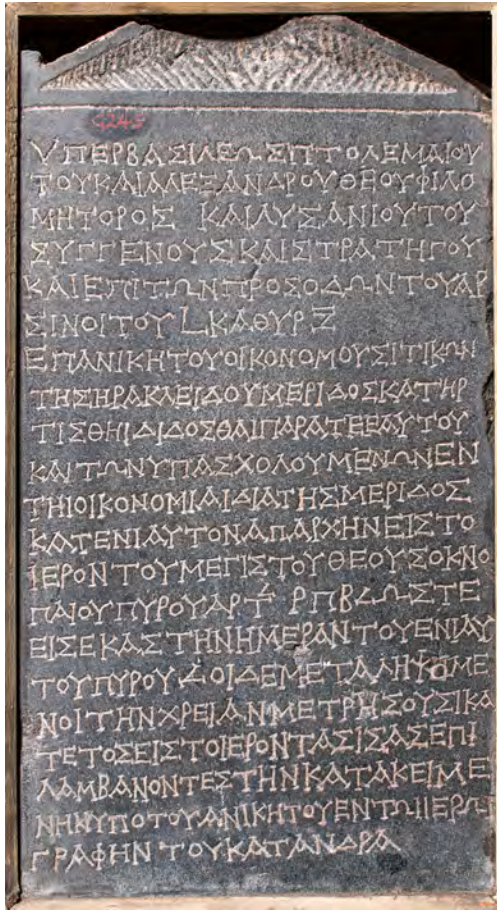 9245
ΥΠΕΡΒΑΣΙΛΕΩΣΠΤΟΛΕΜΑΙΟΥ
ΤΟΥΚΑΙΑΛΕΞΑΝΔΡΟΥΘΕΟΥΦΙΛΟ
ΜΗΤΟΡΟΣ ΚΑΙΛΥΣΑΝΙΟΥΤΟΥ
ΣΥΓΓΕΝΟΥΣΚΑΙΣΤΡΑΤΗΓΟΥ
ΚΑΙΕΠΙΤΩΝΠΡΟΣΟΔΩΝΤΟΥΑΡ
ΣΙΝΟΙΤΟΥ LΚΑΘΥΡΞ
ΕΠΑΝΙΚΗΤΟΥΟΙΚΟΝΟΜΟΥΣΙΤΙΚΩΝ
ΤΗΣΗΡΑΚΛΕΙΔΟΥΜΕΡΙΔΟΣΚΑΤΗΡ
ΤΙΣΘΗΙΔΙΔΟΣΘΑΙΠΑΡΑΤΕΕΑΥΤΟΥ
ΚΑΙΤΩΝΥΠΑΣΧΟΛΟΥΜΕΝΩΝΕΝ
ΤΗΙΟΙΚΟΝΟΜΙΑΙΔΙΑΤΗΣΜΕΡΙΔΟΣ
ΚΑΤΕΝΙΑΥΤΟΝΑΠΑΡΧΗΝΕΙΣΤΟ
ΙΕΡΟΝΤΟΥΜΕΓΙΣΤΟΥΘΕΟΥΣΟΚΝΟ
ΠΑΙΟΥΠΥΡΟΥΑΡΤ ΡΠΒ ΩΣΤΕ
ΕΙΣΕΚΑΣΤΗΝΗΜΕΡΑΝΤΟΥΕΝΙΑΥ
ΤΟΥΠΥΡΟΥ ΟΙΔΕΜΕΤΑΛΗΨΟΜΕ
ΝΟΙΤΗΝΧΡΕΙΑΝΜΕΤΡΗΣΟΥΣΙΚΑ
ΤΕΤΟΣΕΙΣΤΟΙΕΡΟΝΤΑΣΙΣΑΣΕΠΙ
ΛΑΜΒΑΝΟΝΤΕΣΤΗΝΚΑΤΑΚΕΙΜΕ
ΝΗΝΥΠΟΤΟΥΑΝΙΚΗΤΟΥΕΝΤΩΙΙΕΡΩΙ
ΓΡΑΦΗΝΤΟΥΚΑΤΑΝΔΡΑ